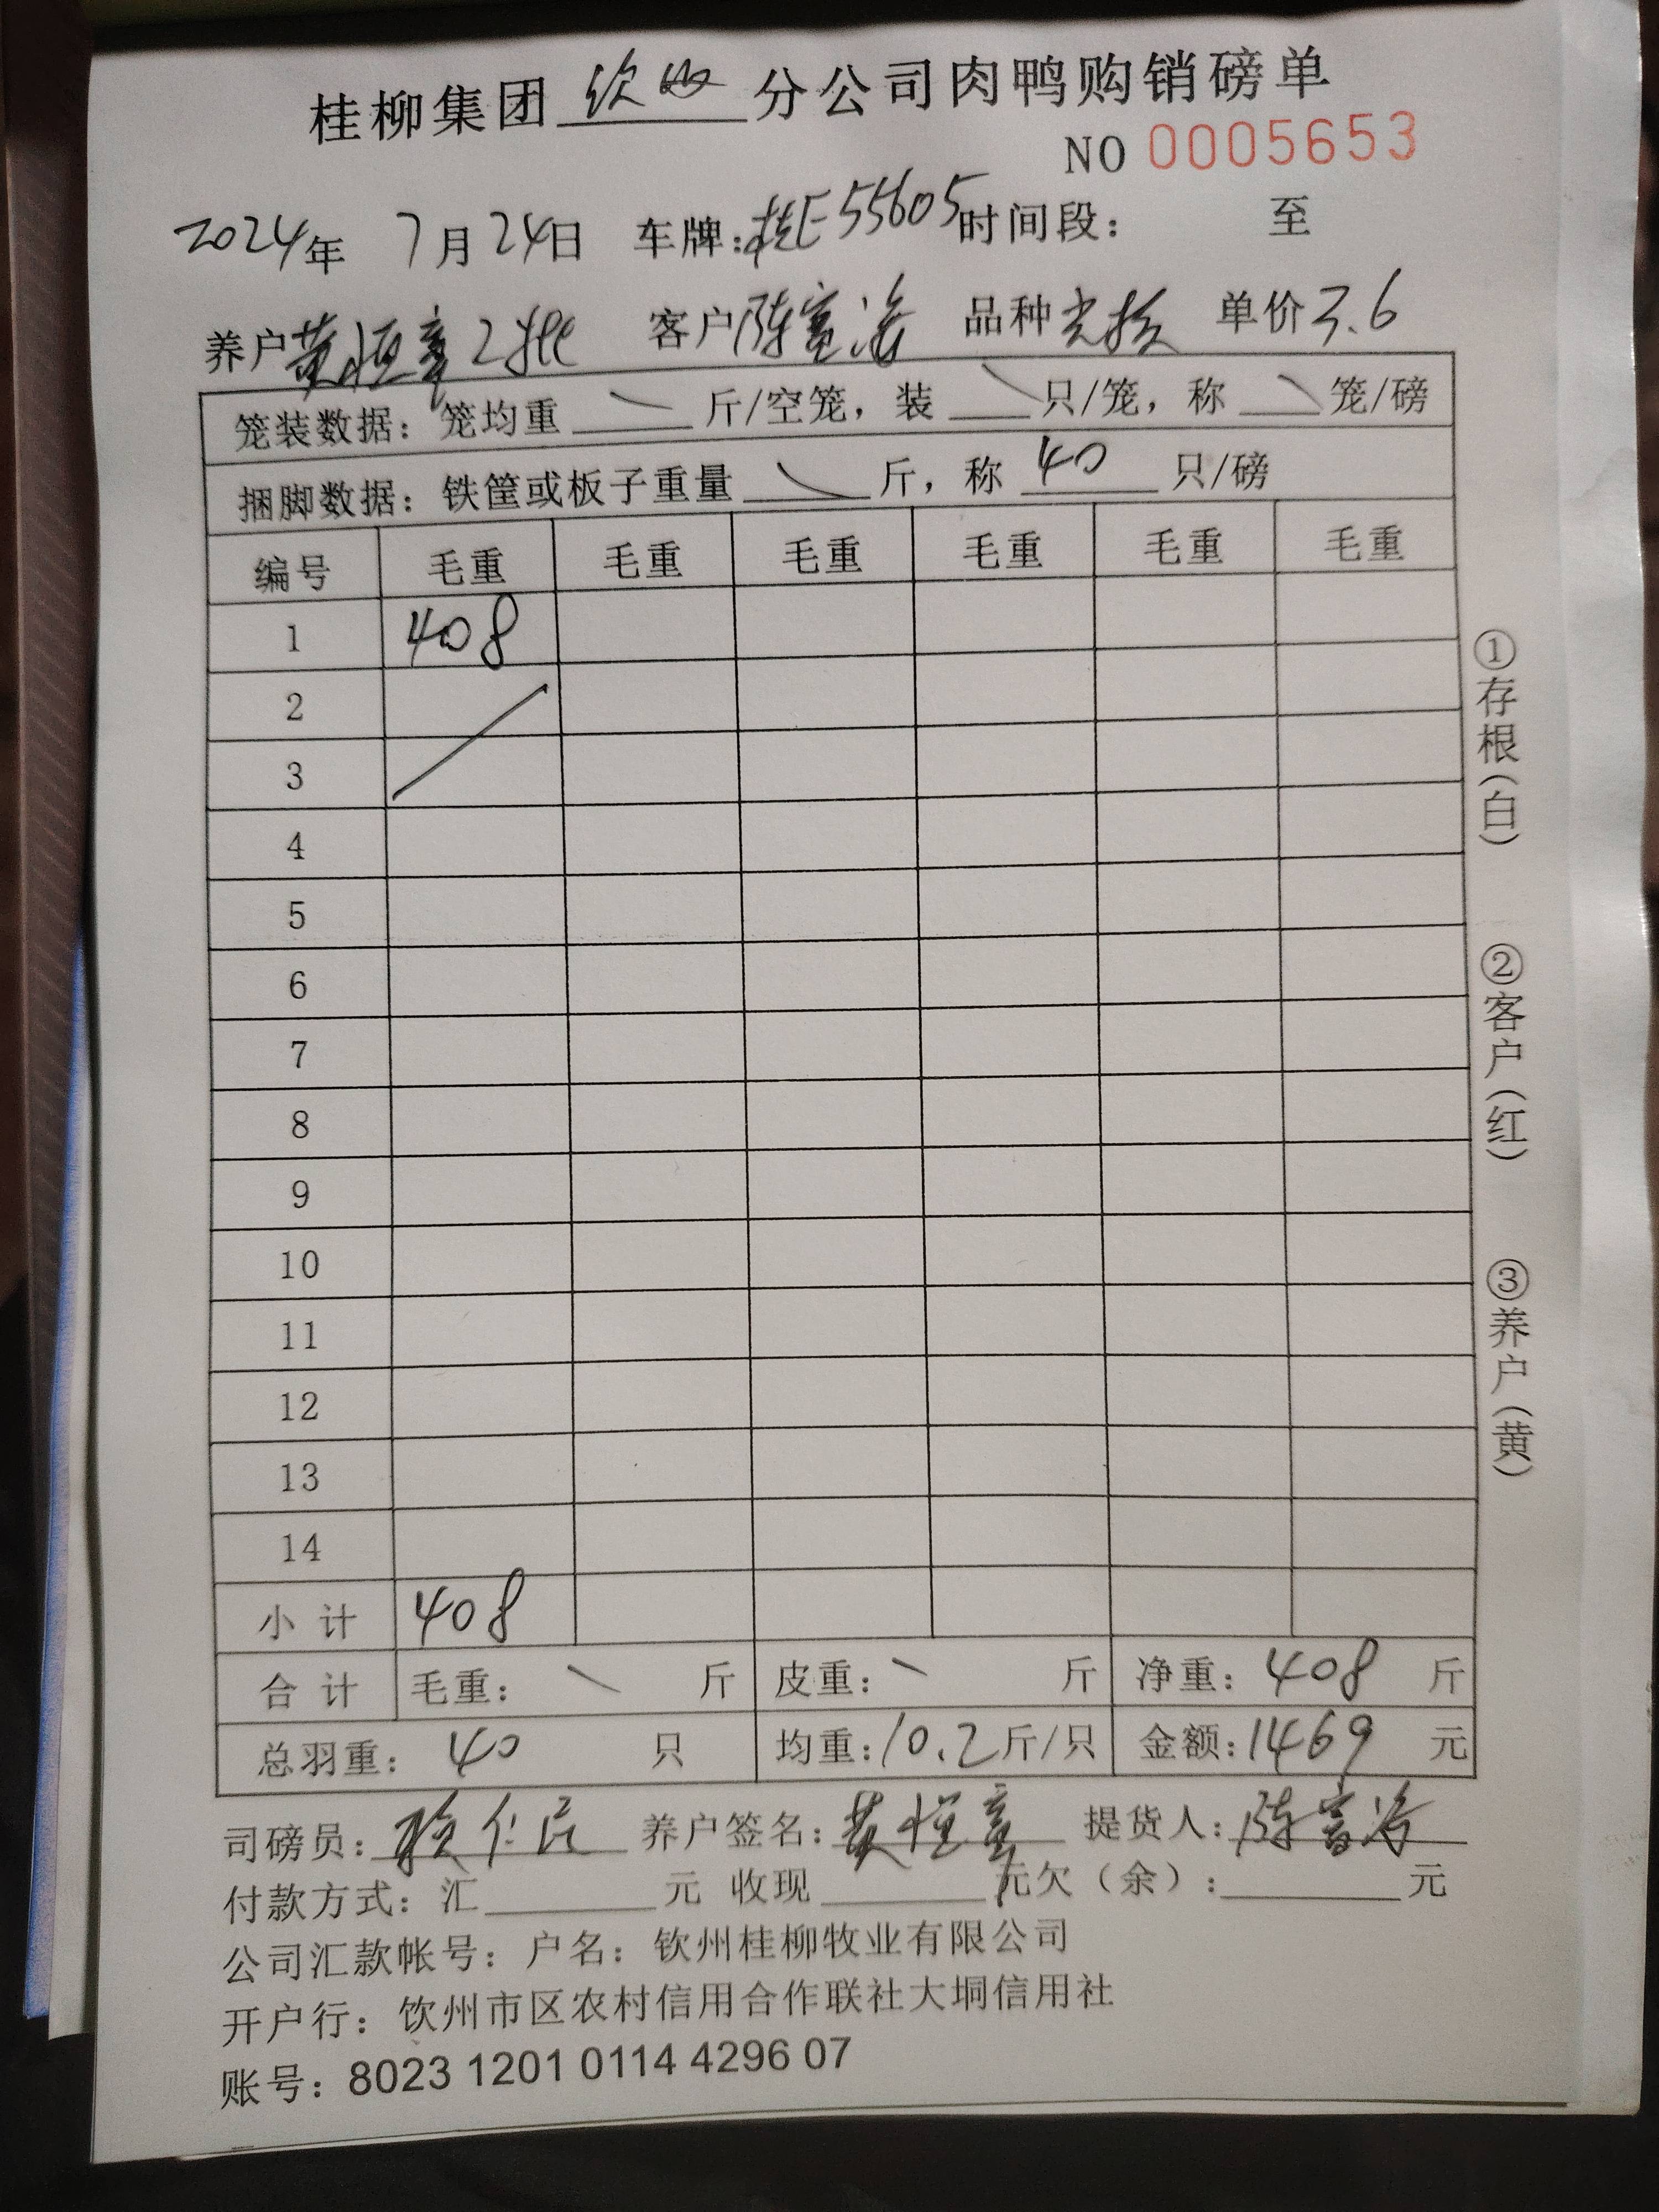 桂柳集团钦州分公司肉鸭购销磅单
NO 0005653
2024年 7月24日 车牌:桂E55605时间段: 至
养户黄恒章2批 客户陈富 品种 单价3.6
笼装数据: 笼均重 斤/空笼, 装 只/笼, 称 笼/磅
捆脚数据: 铁筐或板子重量 斤, 称 40 只/磅
编号 毛重 毛重 毛重 毛重 毛重 毛重
1 408
2
3
4
5
6
7
8
9
10
11
12
13
14
小 计 408
合 计 毛重: 斤 皮重: 斤 净重: 408 斤
总羽重: 40 只 均重:10.2斤/只 金额:1469 元
司磅员: 仁 养户签名:黄恒章 提货人:陈富
付款方式: 汇 元 收现 元欠(余): 元
公司汇款帐号: 户名: 钦州桂柳牧业有限公司
开户行: 饮州市区农村信用合作联社大垌信用社
账号: 8023 1201 0114 4296 07
①存根(白)
②客户(红)
③养户(黄)